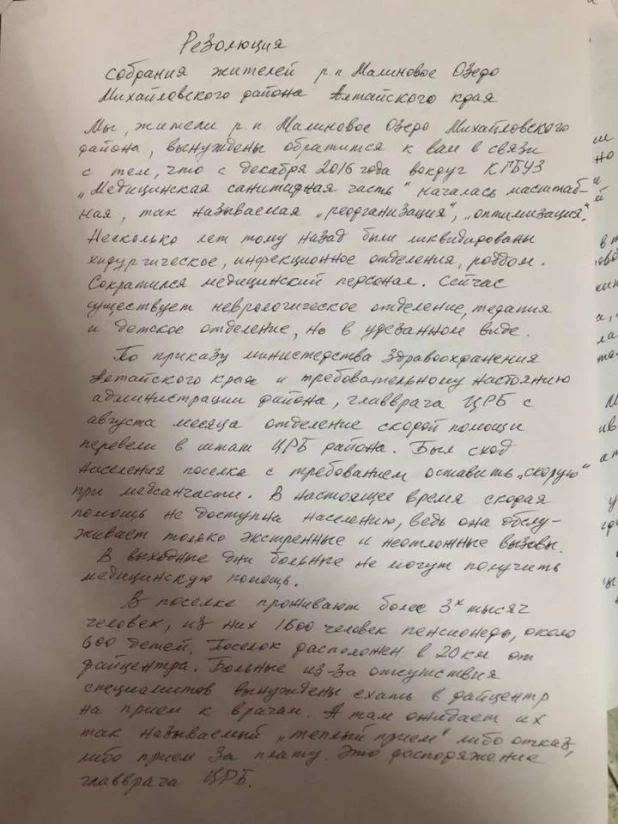 Резолюция
собрания жителей р.п Малиновое Озеро
Михайловского района Алтайского края
Мы, жители р.п Малиновое Озеро Михайловского
района, вынуждены обратится к вам в связи
с тем, что с декабря 2016 года вокруг КГБУЗ
„Медицинская санитарная часть" началась масштаб-
ная, так называемая „реорганизация", „оптимизация".
Несколько лет тому назад были ликвидированы
хирургическое, инфекционное отделения, роддом.
Сократился медицинский персонал. Сейчас
существует неврологическое отделение, терапия
и детское отделение, но в урезанном виде.
По приказу министерства Здравоохранения
Алтайского края и требовательному настоянию
администрации района, главврача ЦРБ с
августа месяца отделение скорой помощи
перевели в штат ЦРБ района. Был сход
населения поселка с требованием оставить „скорую"
при медсанчасти. В настоящее время скорая
помощь не доступна населению, ведь она обслу-
живает только экстренные и неотложные вызовы.
В выходные дни больные не могут получить
медицинскую помощь.
В поселке проживают более 3х тысяч
человек, из них 1600 человек пенсионеры, около
600 детей. Поселок расположен в 20 км от
райцентра. Больные из-за отсутствия
специалистов вынуждены ехать в райцентр
на прием к врачам. А там ожидает их
так называемый „теплый прием" либо отказ,
либо прием за плату. Это распоряжение
главврача ЦРБ.